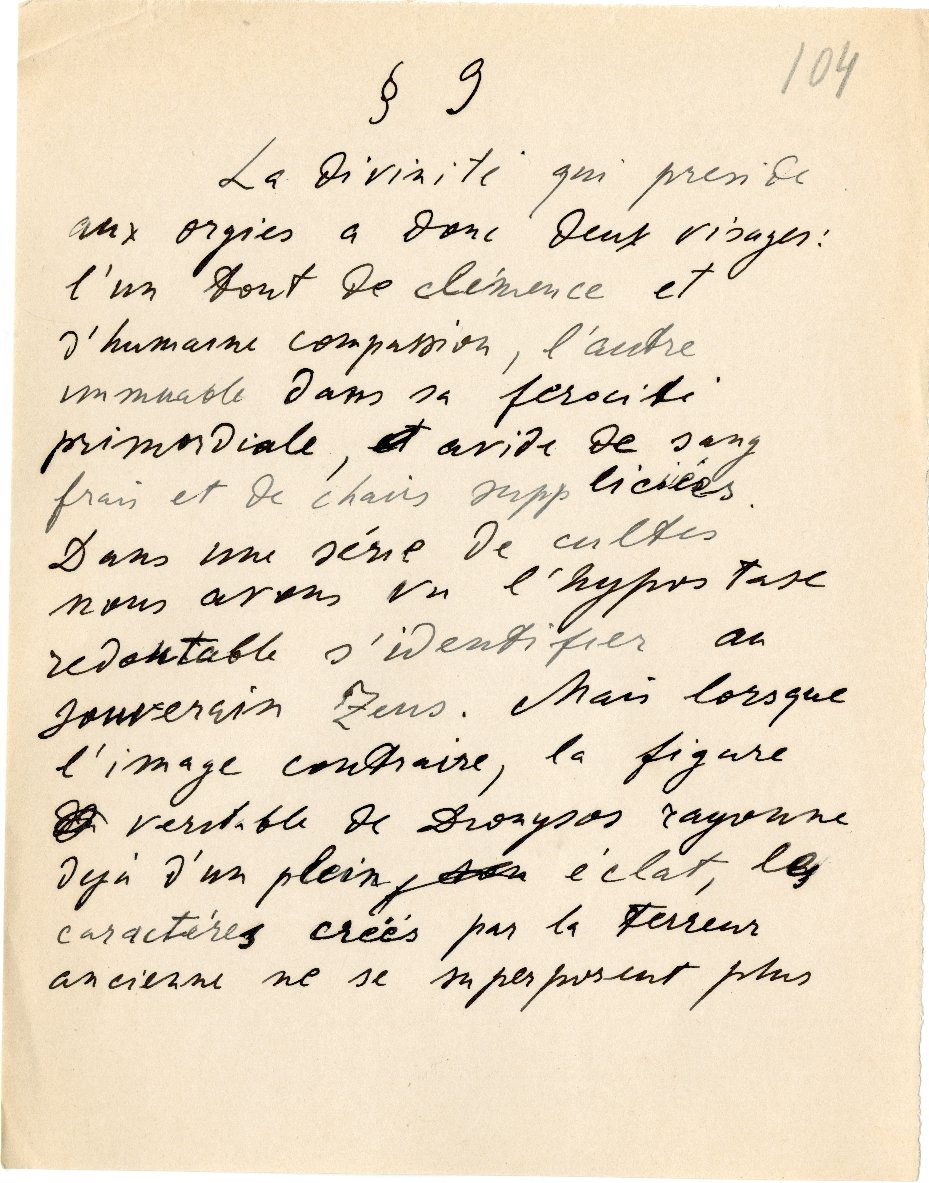 104
§ 9
La divinité qui preside
aux orgies a donc deux visages:
l'un tout de clémence et
d'humaine compassion, l'autre
immuable dans sa ferocité
primordiale, et avide de sang
frais et de chairs suppliciées.
Dans une série de cultes
nous avons vu l'hypostase
redoutable s'identifier au
souverain Zeus. Mais lorsque
l'image contraire, la figure
veritable de Dionysos rayonne
dejà d'un plein éclat, les
caractéres créés par la terreur
ancienne ne se superposent plus